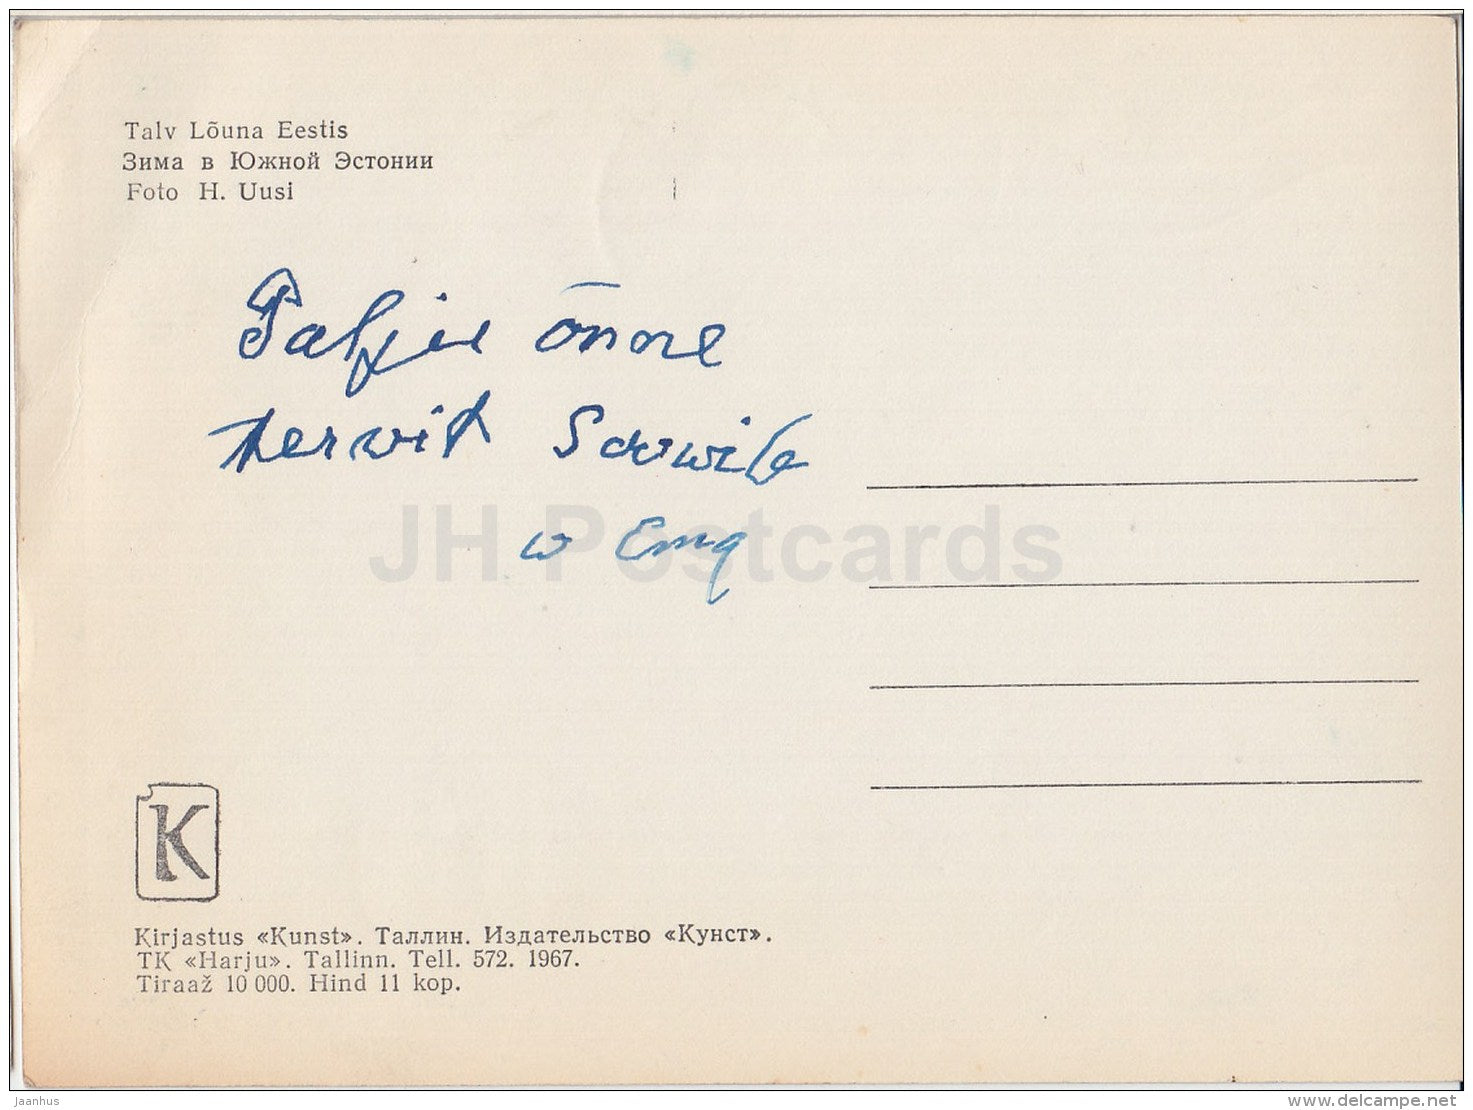 Talv Lõuna Eestis
Зима в Южной Эстонии
Foto H. Uusi
Palju õnne
tervit Soovib
Ema
JH Postcards
K
Kirjastus «Kunst». Таллин. Издательство «Кунст».
TK «Harju». Tallinn. Tell. 572. 1967.
Tiraaž 10 000. Hind 11 kop.
jaanhus
www.delcampe.net